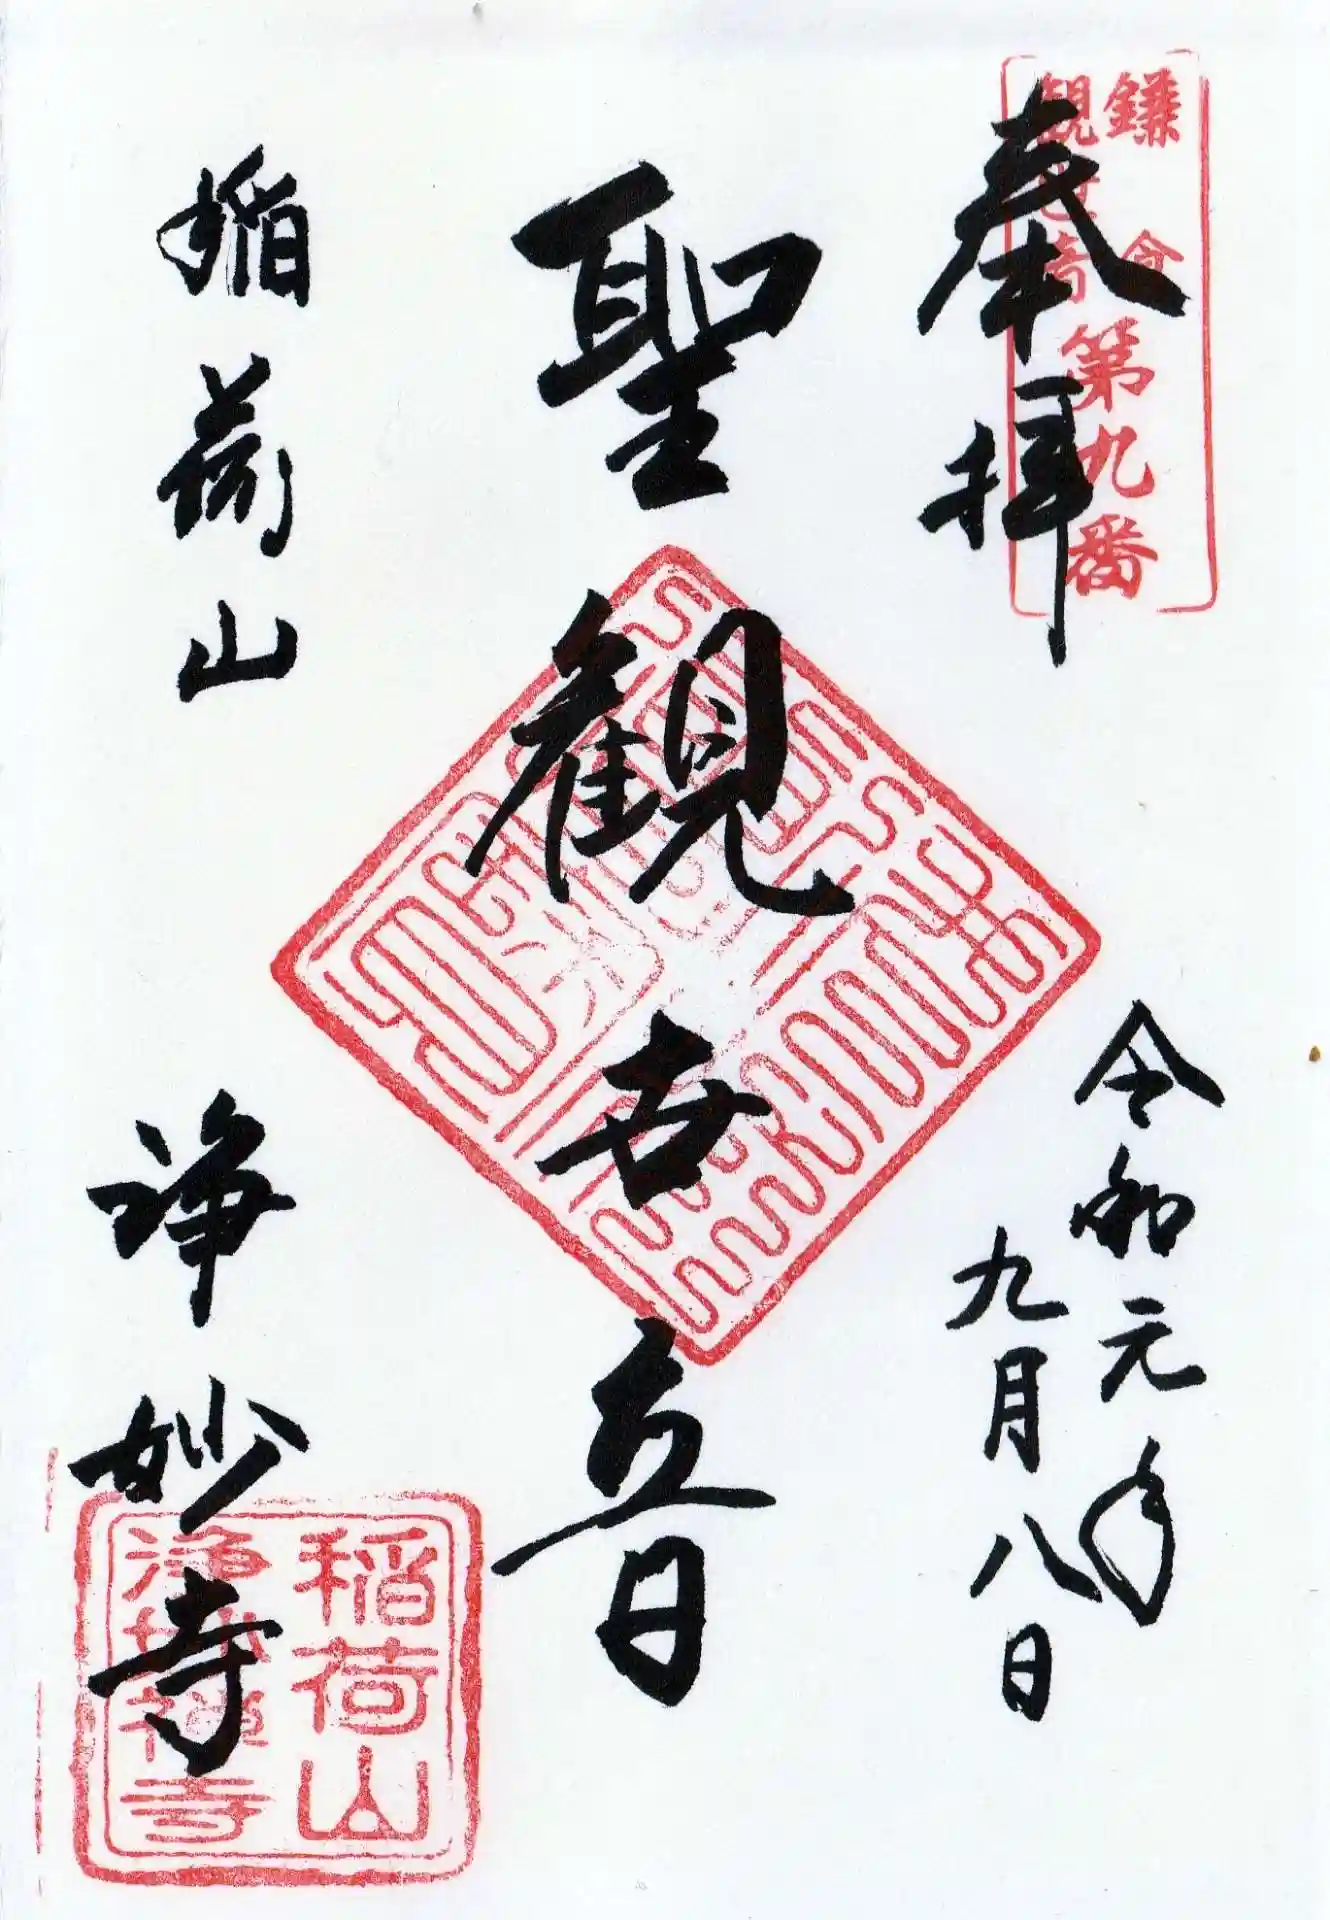 鎌倉
観世音
第九番
奉拝
令和元年
九月八日
聖観世音
稲荷山
浄妙寺
稲荷山
浄妙禅寺